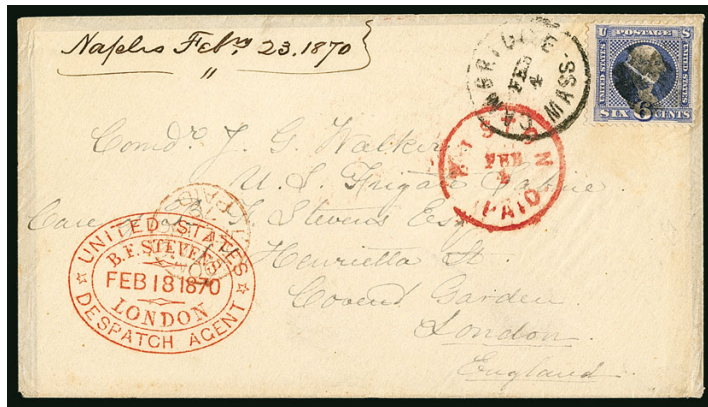 Naples Feby. 23. 1870
"
CAMBRIDGE MASS
FEB
4
U S POSTAGE
UNITED STATES UNITED STATES
SIX 6 CENTS
BOSTON
FEB
4
PAID
Comdr. J. G. Walker
U. S. Frigate Sabine
Care B. F. Stevens Esq
Henrietta St.
Covent Garden
London
England
UNITED STATES
B.F. STEVENS
FEB 18 1870
LONDON
DESPATCH AGENT